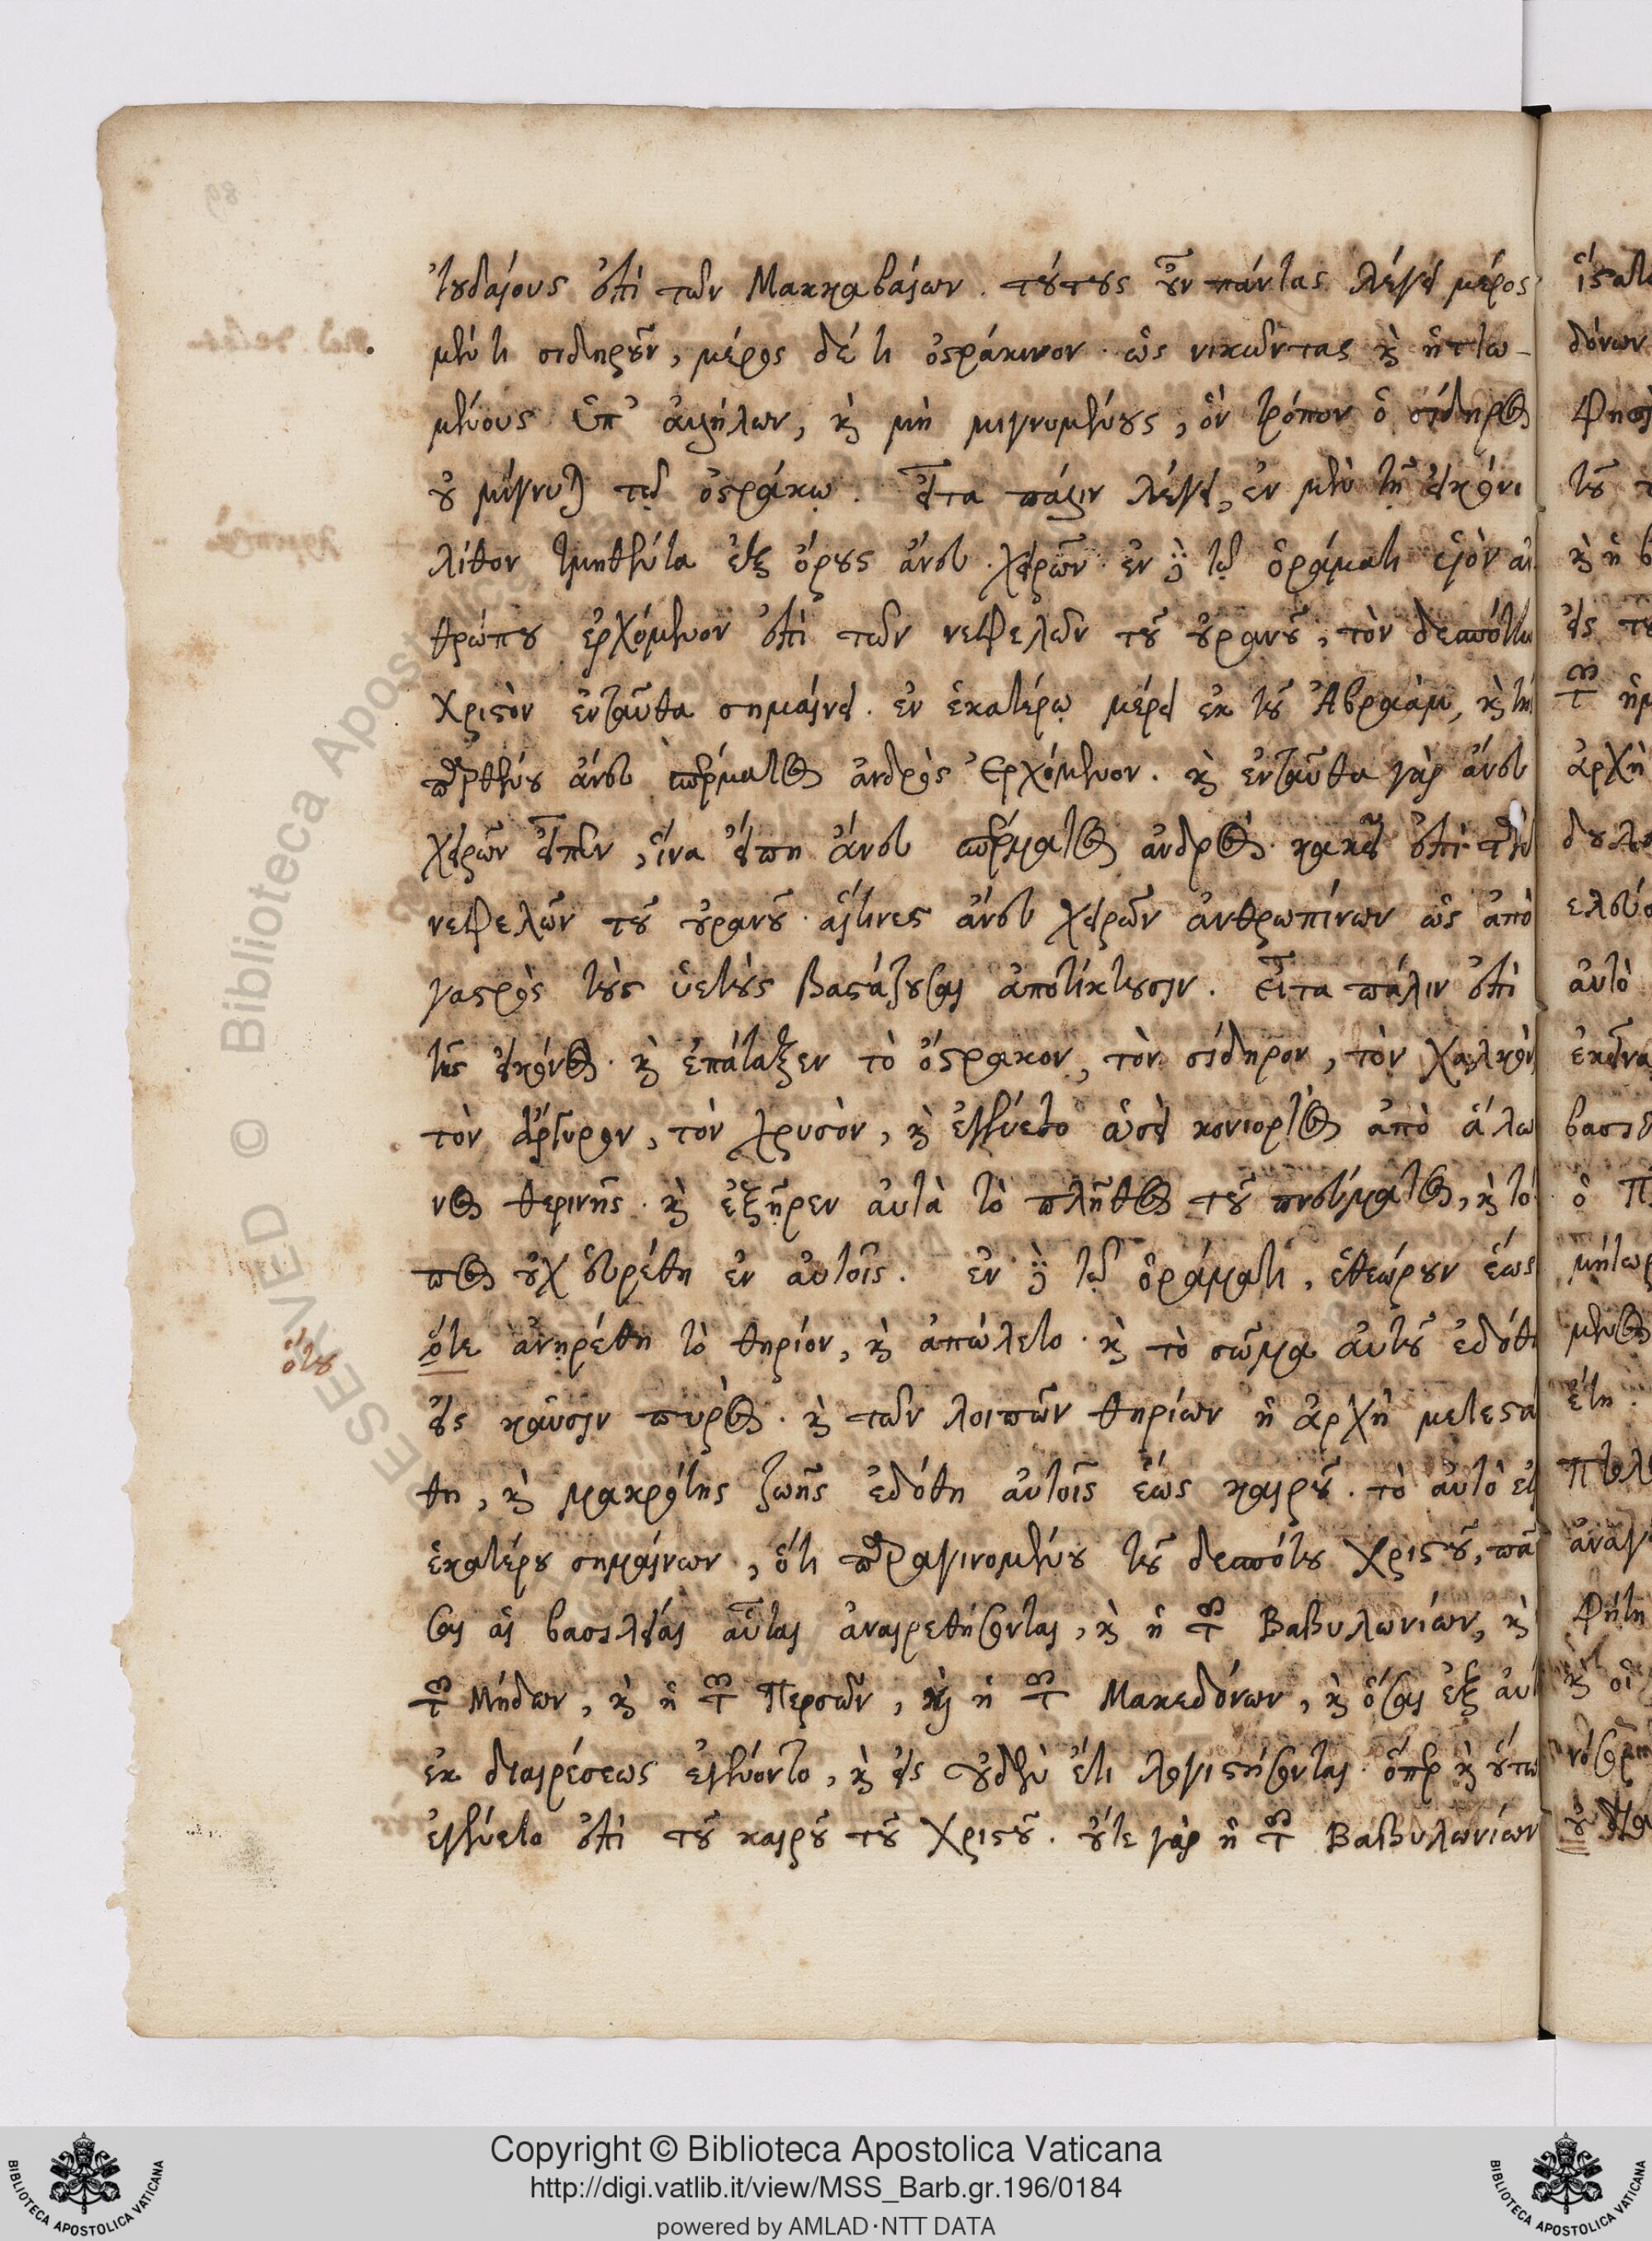 Ἰουδαίους ἐπὶ τῶν Μακκαβαίων. τούτους οὖν πάντας λέγει μέρος
μέν τι σιδηροῦν, μέρος δέ τι ὀστράκινον· ὡς νικῶντας καὶ ἡττω-
μένους ὑπ' ἀλλήλων, καὶ μὴ μιγνυμένους, ὃν τρόπον ὁ σίδηρος
οὐ μίγνυται τῷ ὀστράκῳ. εἶτα πάλιν λέγει, ἐν μὲν τῇ εἰκόνι
λίθον τμηθέντα ἐξ ὄρους ἄνευ χειρῶν· ἐν δὲ τῷ ὁράματι υἱὸν ἀν
θρώπου ἐρχόμενον ἐπὶ τῶν νεφελῶν τοῦ οὐρανοῦ, τὸν δεσπότην
Χριστὸν ἐνταῦθα σημαίνει. ἐν ἑκατέρῳ μέρει ἐκ τοῦ Ἀβραὰμ, καὶ τῆς
παρθένου ἄνευ σπέρματος ἀνδρὸς ἐρχόμενον. καὶ ἐνταῦθα γὰρ ἄνευ
χειρῶν εἶπεν, ἵνα εἴπῃ ἄνευ σπέρματος ἀνδρός· κακεῖ ἐπὶ τῶν
νεφελῶν τοῦ οὐρανοῦ· αἵτινες ἄνευ χειρῶν ἀνθρωπίνων ὡς ἀπὸ
γαστρὸς τοὺς ὑετοὺς βαστάζουσαι ἀποτίκτουσιν. εἶτα πάλιν ἐπὶ
τῆς εἰκόνος· καὶ ἐπάταξεν τὸ ὄστρακον, τὸν σίδηρον, τὸν χαλκὸν
τὸν ἄργυρον, τὸν χρυσὸν, καὶ ἐγένετο ὡσεὶ κονιορτὸς ἀπὸ ἅλω
νος θερινῆς· καὶ ἐξῆρεν αὐτὰ τὸ πλῆθος τοῦ πνεύματος, καὶ τό
πος οὐχ εὑρέθη ἐν αὐτοῖς. ἐν δὲ τῷ ὁράματι, ἐθεώρουν ἕως
ὅτε ἀνῃρέθη τὸ θηρίον, καὶ ἀπώλετο· καὶ τὸ σῶμα αὐτοῦ ἐδόθη
ὅτου
εἰς καῦσιν πυρός· καὶ τῶν λοιπῶν θηρίων ἡ ἀρχὴ μετεστά
θη, καὶ μακρότης ζωῆς ἐδόθη αὐτοῖς ἕως καιροῦ. τὸ αὐτὸ ἐξ
ἑκατέρου σημαίνων, ὅτι παραγινομένου τοῦ δεσπότου Χριστοῦ, πᾶ
σαι αἱ βασιλείαι αὗται ἀναιρεθήσονται, καὶ ἡ τῶν Βαβυλωνίων, καὶ
τῶν Μήδων, καὶ ἡ τῶν Περσῶν, καὶ ἡ τῶν Μακεδόνων, καὶ ὅσαι ἐξ αὐτ
ἐκ διαιρέσεως ἐγένοντο, καὶ εἰς οὐδὲν ἔτι λογισθήσονται· ὅπερ καὶ οὕτω
ἐγένετο ἐπὶ τοῦ καιροῦ τοῦ Χριστοῦ. οὔτε γὰρ ἡ τῶν Βαβυλωνίων
Copyright © Biblioteca Apostolica Vaticana
http://digi.vatlib.it/view/MSS_Barb.gr.196/0184
powered by AMLAD·NTT DATA